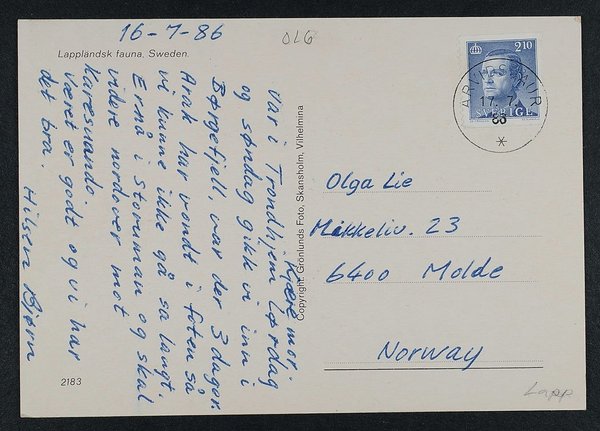 16-7-86
016
Lappländsk fauna, Sweden.
Kjære mor.
Var i Trondhjem Lørdag
og søndag gikk vi inn i
Børgefjell, var der 3 dager.
Arak har vondt i foten så
vi kunne ikke gå så langt.
Er nå i Storuman og skal
videre nordover mot
Karesuando.
Været er godt og vi har
det bra.
Hilsen Bjørn
2183
Copyright: Grönlunds Foto, Skansholm, Vilhelmina
2.10
SVERIGE
17.7.
Olga Lie
Mikkeliv. 23
6400 Molde
Norway
Lapp